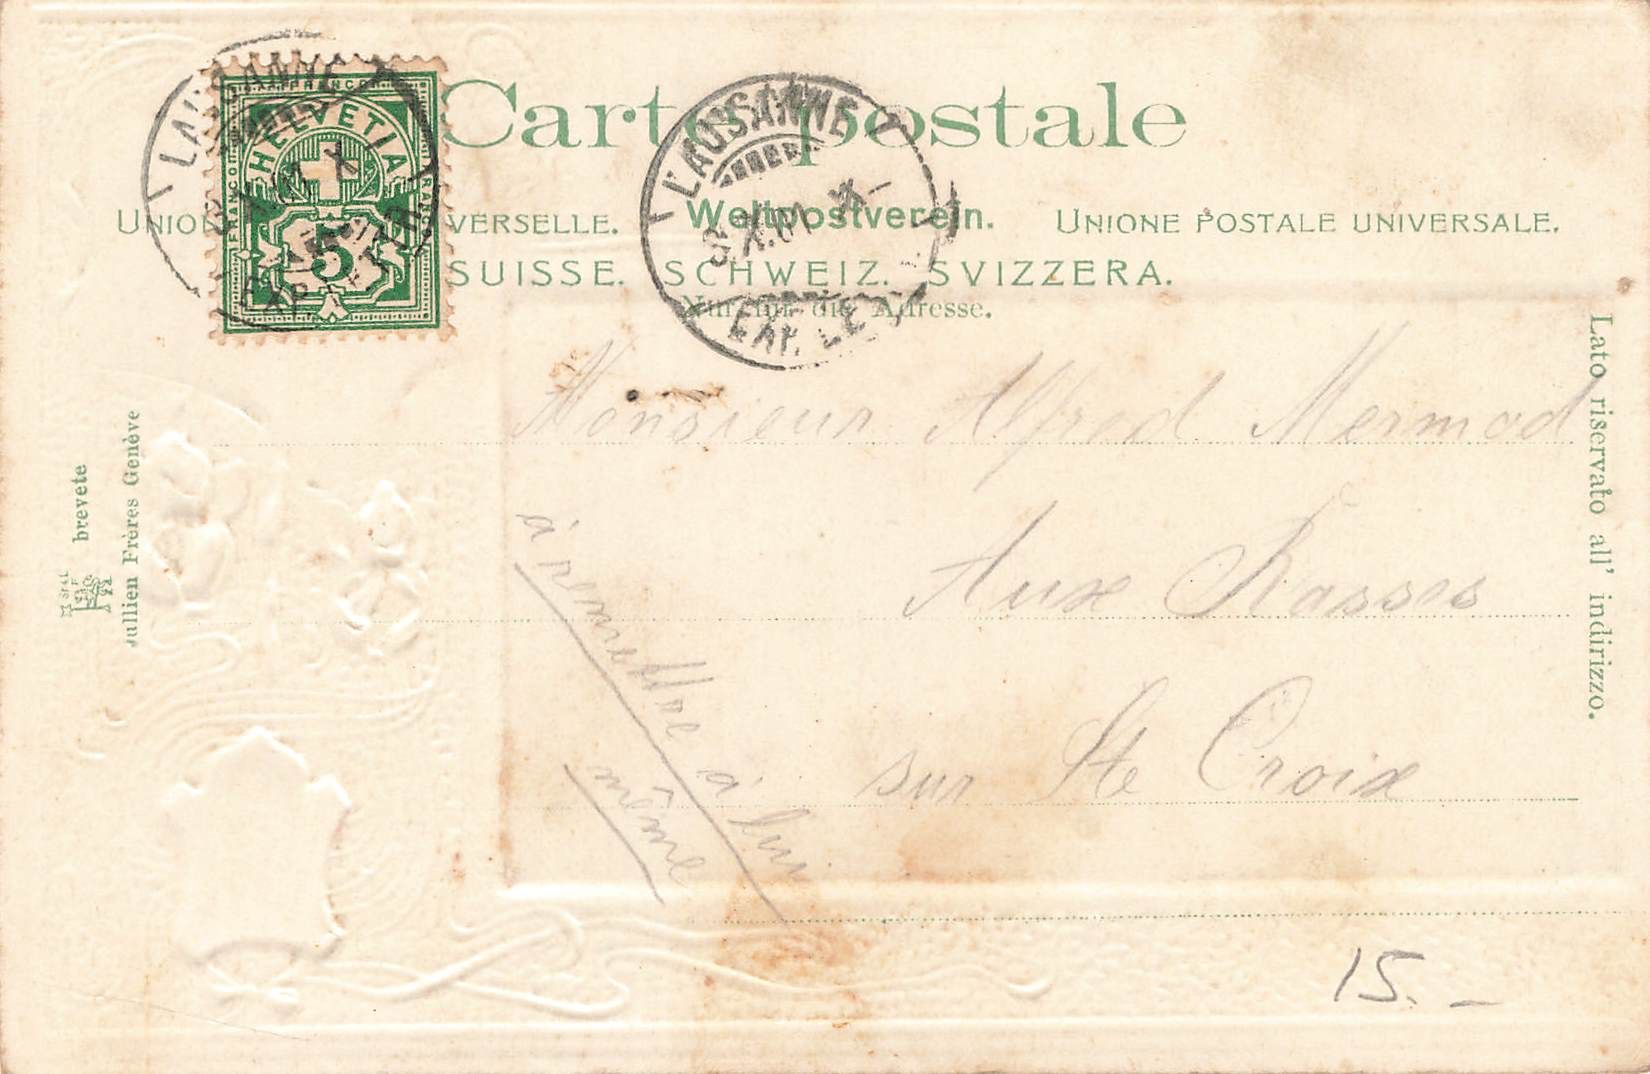 Carte postale
UNION VERSELLE. Weltpostverein. UNIONE POSTALE UNIVERSALE.
SUISSE. SCHWEIZ. SVIZZERA.
Nur für die Adresse.
FRANCO
HELVETIA
FRANCO
FRANCO
5
LAUSANNE
X
LAUSANNE
X.01
EXP. LE
Monsieur Alfred Mermod
Aux Rasses
sur Ste Croix
à remettre à lui
même
Lato riservato all' indirizzo.
brevete
Jullien Frères Genève
15.-